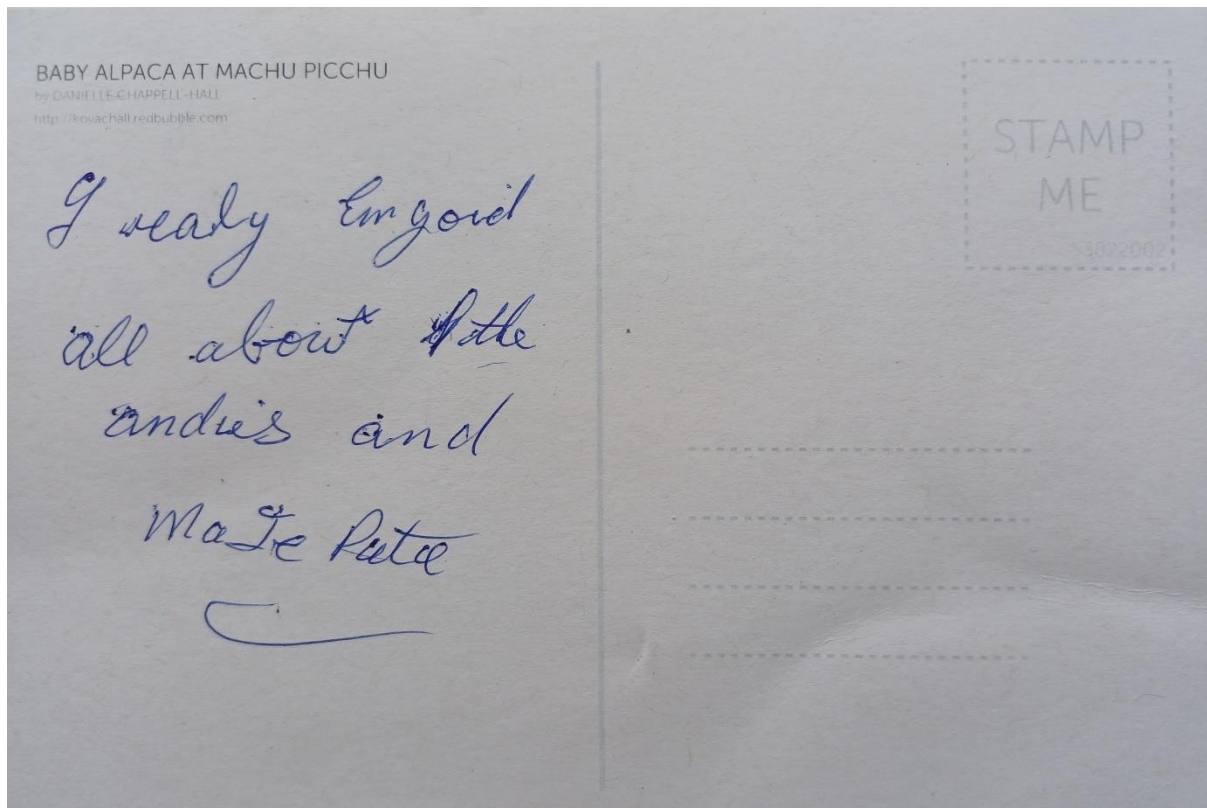 BABY ALPACA AT MACHU PICCHU
by DANIELLE CHAPPELL-HALL
http://kovachall.redbubble.com
I realy Emgoid
all about the
andies and
Mate Pata
STAMP
ME
53822002